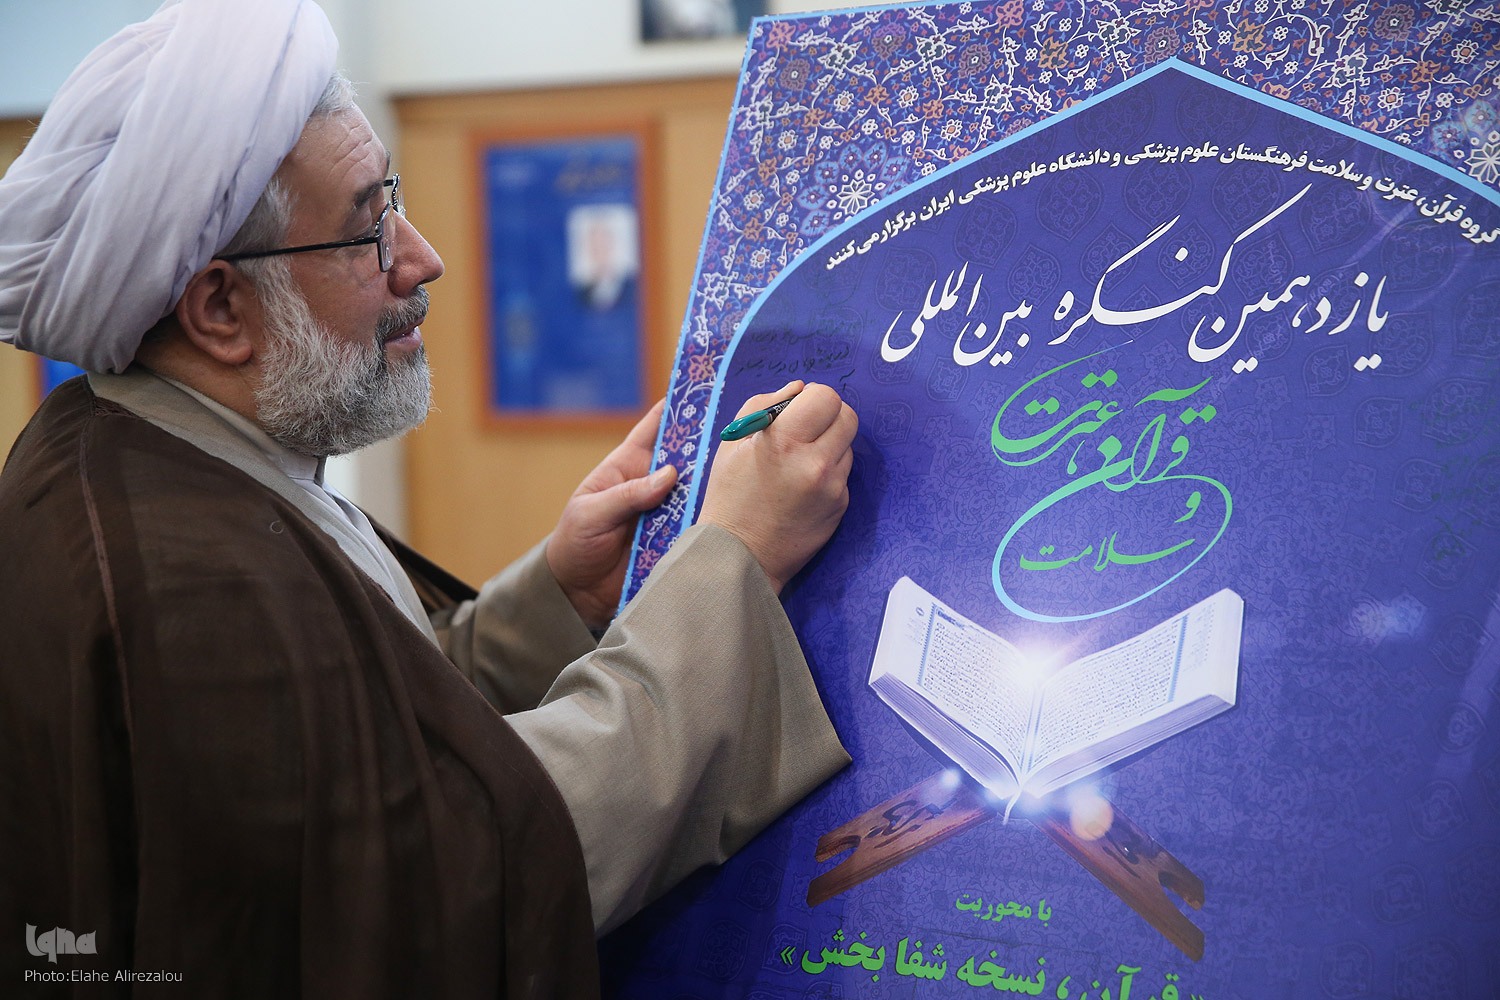 گروه قرآن، عترت و سلامت فرهنگستان علوم پزشکی و دانشگاه علوم پزشکی ایران برگزار می کنند
یازدهمین کنگره بین المللی
قرآن، عترت
و
سلامت
با محوریت
«قرآن، نسخه شفا بخش»
Iqna
Photo:Elahe Alirezalou